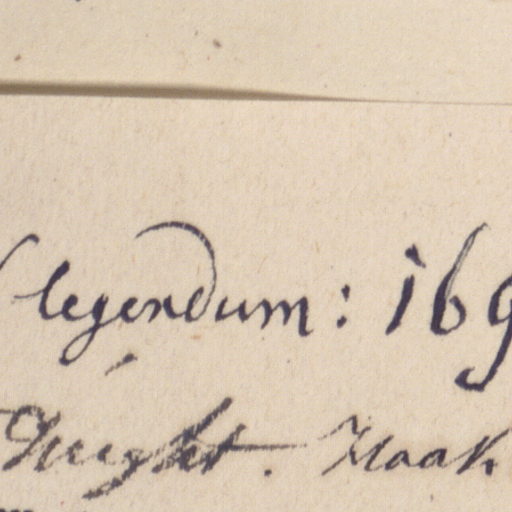 legendum: 169
Knight. Haak